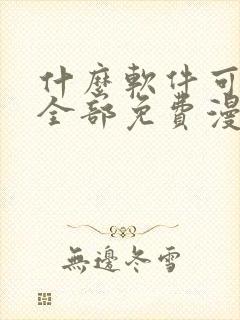 什麼軟件可
全部免費漫
無邊冬雪